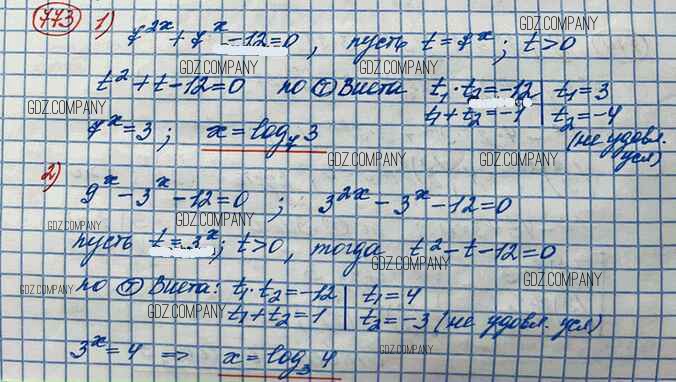 773 1) GDZ.COMPANY
7^{2x} + 7^x - 12 = 0, пусть t = 7^x; t > 0
GDZ.COMPANY GDZ.COMPANY
t² + t - 12 = 0 по Ⓣ Виета t₁·t₂ = -12 | t₁ = 3
GDZ.COMPANY t₁ + t₂ = -1 | t₂ = -4
7^x = 3; x = log₇ 3 (не удовл. усл)
GDZ.COMPANY GDZ.COMPANY
2) 9^x - 3^x - 12 = 0; 3^{2x} - 3^x - 12 = 0
GDZ.COMPANY GDZ.COMPANY
пусть t = 3^x; t > 0, тогда t² - t - 12 = 0
GDZ.COMPANY GDZ.COMPANY GDZ.COMPANY
по Ⓣ Виета: t₁·t₂ = -12 | t₁ = 4
GDZ.COMPANY t₁ + t₂ = 1 | t₂ = -3 (не удовл. усл)
3^x = 4 => x = log₃ 4 GDZ.COMPANY